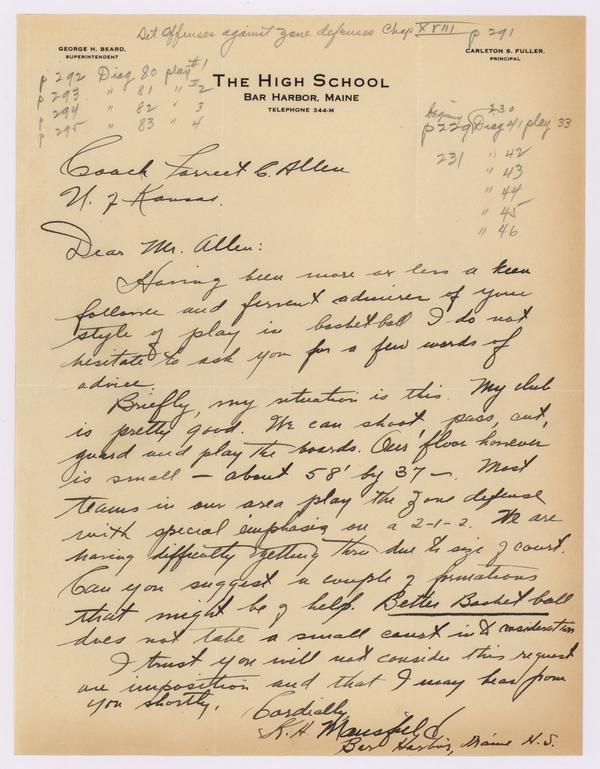 Set Offenses against zone defenses Chap XVIII p 291
GEORGE H. BEARD,
SUPERINTENDENT
CARLETON S. FULLER,
PRINCIPAL
p 292 Diag 80 play #1
p 293 " 81 " #2
p 294 " 82 " 3
p 295 " 83 " 4
THE HIGH SCHOOL
BAR HARBOR, MAINE
TELEPHONE 344-M
Beginning 230
p 229 Diag 41 play 33
231 " 42
" 43
" 44
" 45
" 46
Coach Forrest C. Allen
U. of Kansas.
Dear Mr. Allen:
Having been more or less a keen
follower and fervent admirer of your
style of play in basketball I do not
hesitate to ask you for a few words of
advice.
Briefly, my situation is this. My club
is pretty good. We can shoot, pass, cut,
guard and play the boards. Our floor however
is small — about 58' by 37 —. Most
teams in our area play the zone defense
with special emphasis on a 2-1-2. We are
having difficulty getting thru due to size of court.
Can you suggest a couple of formations
that might be of help. Better Basketball
does not take a small court into consideration
I trust you will not consider this request
an imposition and that I may hear from
you shortly.
Cordially
K. H. Mansfield
Bar Harbor, Maine H.S.